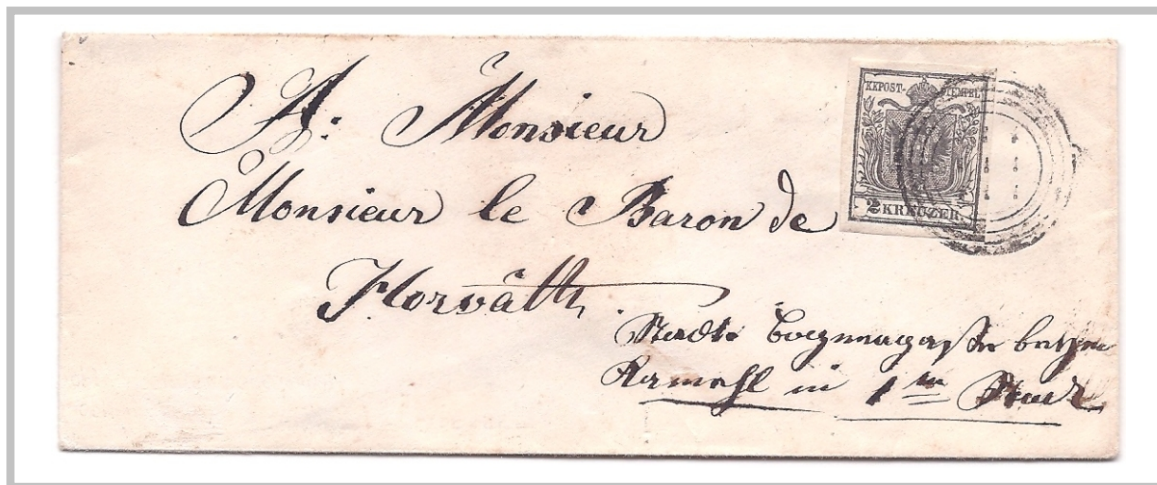 A: Monsieur
Monsieur le Baron de
Horváth
Stadt
in 1
KKPOST-STEMPEL
2 KREUZER